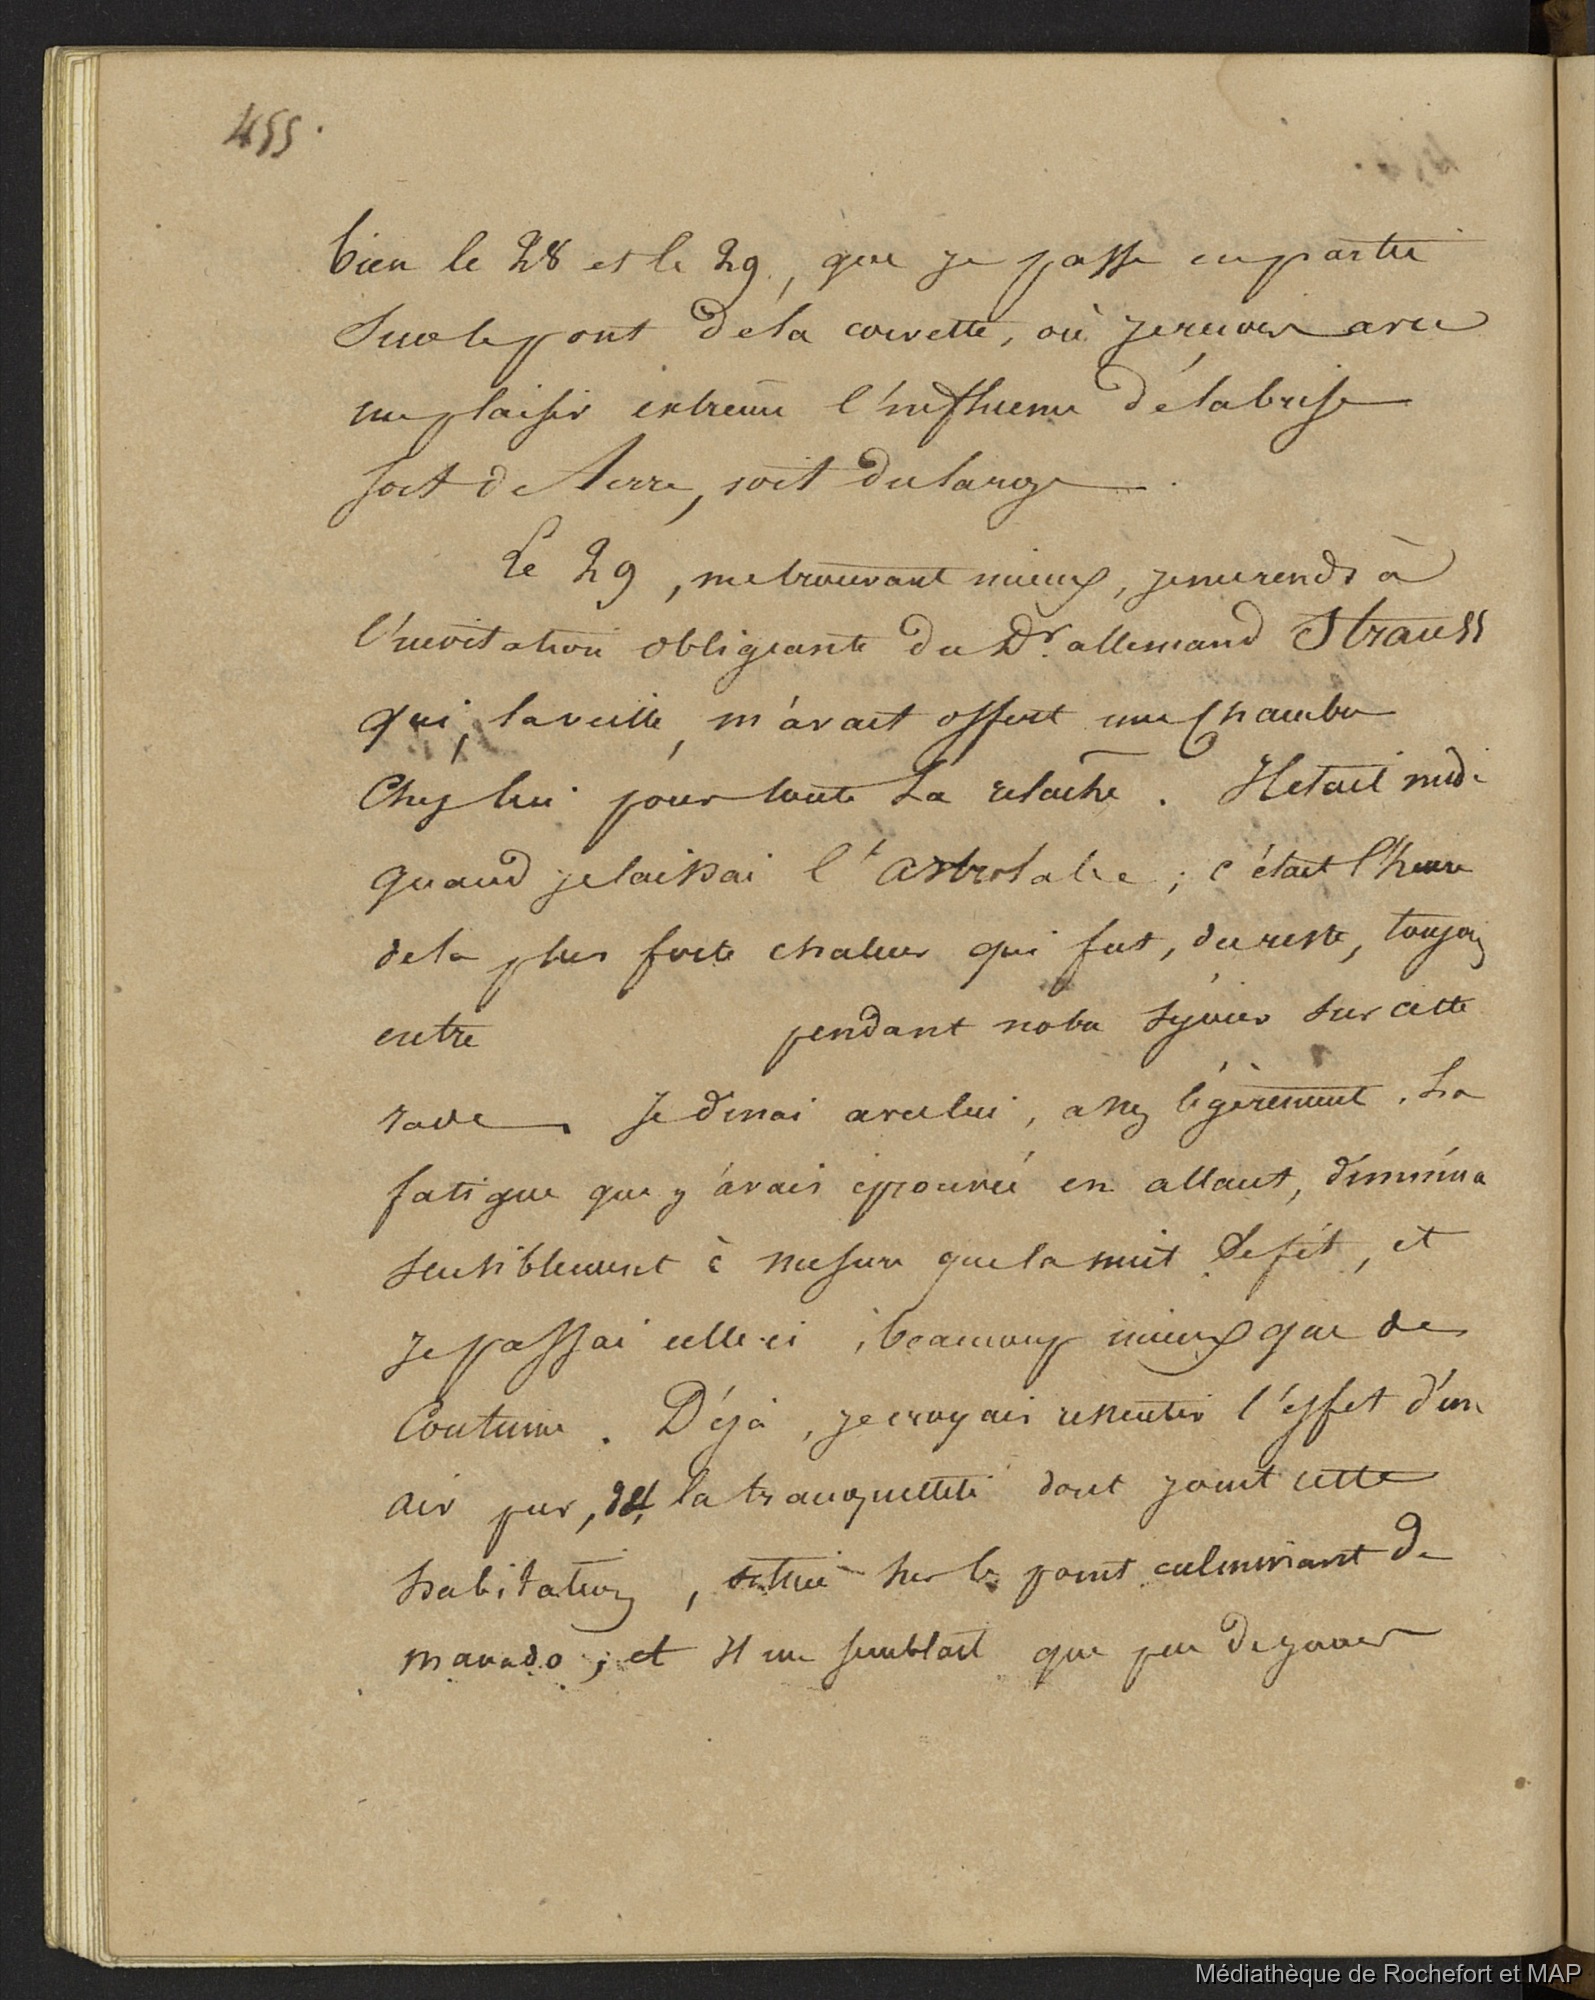 455.
bien le 28 et le 29, que je passe en partie
sur le pont de la corvette, où je reçois avec
un plaisir extrême l'influence de la brise
soit de terre, soit du large.
Le 29, me trouvant mieux, je me rends à
l'invitation obligeante du Dr. allemand Strauss
qui, la veille, m'avait offert une chambre
chez lui pour toute la relâche. Il était midi
quand je laissai l'astrolabe ; c'était l'heure
de la plus forte chaleur qui fut, du reste, toujours
entre pendant notre séjour sur cette
rade. Je dînai avec lui, assez légèrement. La
fatigue que j'avais éprouvée en allant, diminua
sensiblement à mesure que la nuit se fit, et
je passai celle-ci, beaucoup mieux que de
coutume. Déjà, je croyais ressentir l'effet d'un
air pur, de la tranquillité dont jouit cette
habitation, située sur le point culminant de
manado ; et il me semblait que peu de jours
Médiathèque de Rochefort et MAP